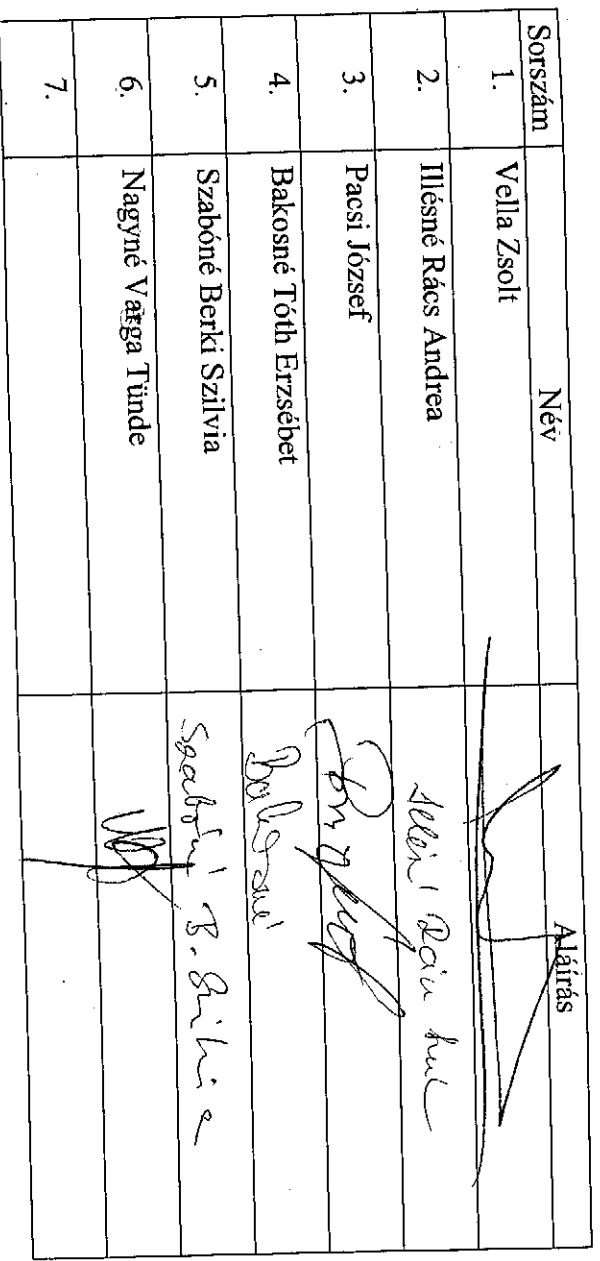 Sorszám Név Aláírás
1. Vella Zsolt
2. Illésné Rács Andrea
3. Pacsi József
4. Bakosné Tóth Erzsébet Bakosné
5. Szabóné Berki Szilvia Szabóné B. Szilvia
6. Nagyné Varga Tünde
7.